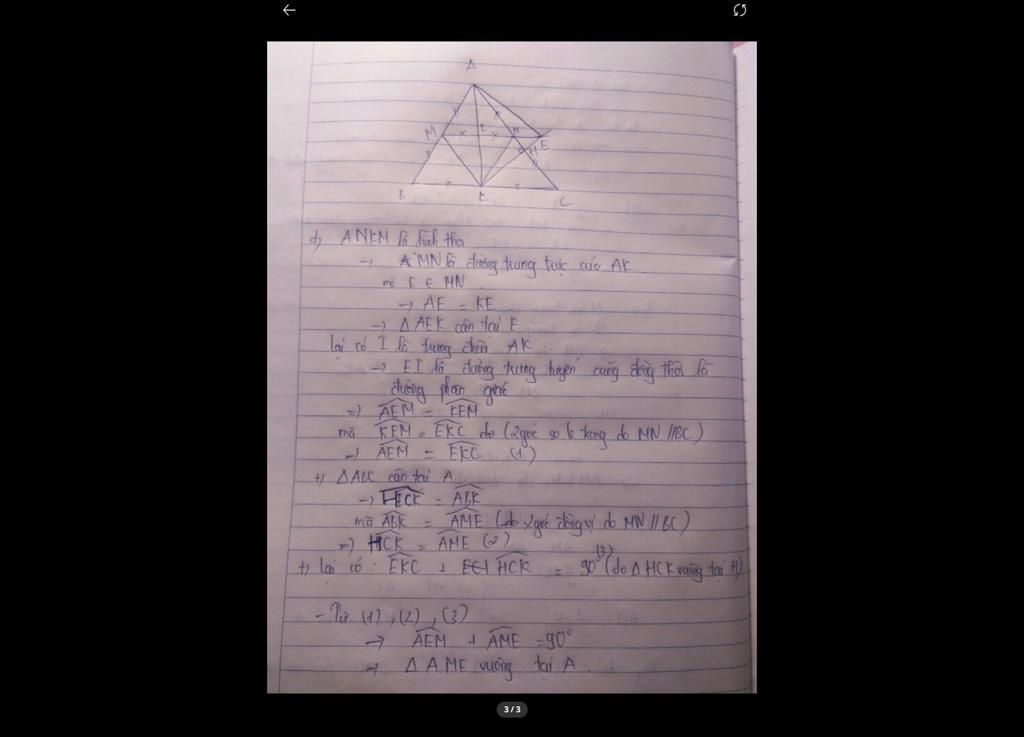 A
M
I
N
H
E
B
K
C
d, ANKM là hình thoi
→ MN là đường trung trực của AK
mà E ∈ MN
→ AE = KE
→ Δ AEK cân tại E
lại có I là trung điểm AK
→ EI là đường trung tuyến cũng đồng thời là
đường phân giác
=) AEM = KEM
mà KEM = EKC do (2 góc so le trong do MN // BC)
=) AEM = EKC (1)
+, Δ ABC cân tại A
→ HCK = ABK
mà ABK = AME ( 2 góc đồng vị do MN // BC)
=) HCK = AME (2)
+, lại có : EKC + HCK = 90° (3) (do Δ HCK vuông tại H)
- Từ (1) , (2) , (3)
→ AEM + AME = 90°
→ Δ AME vuông tại A .
3/3